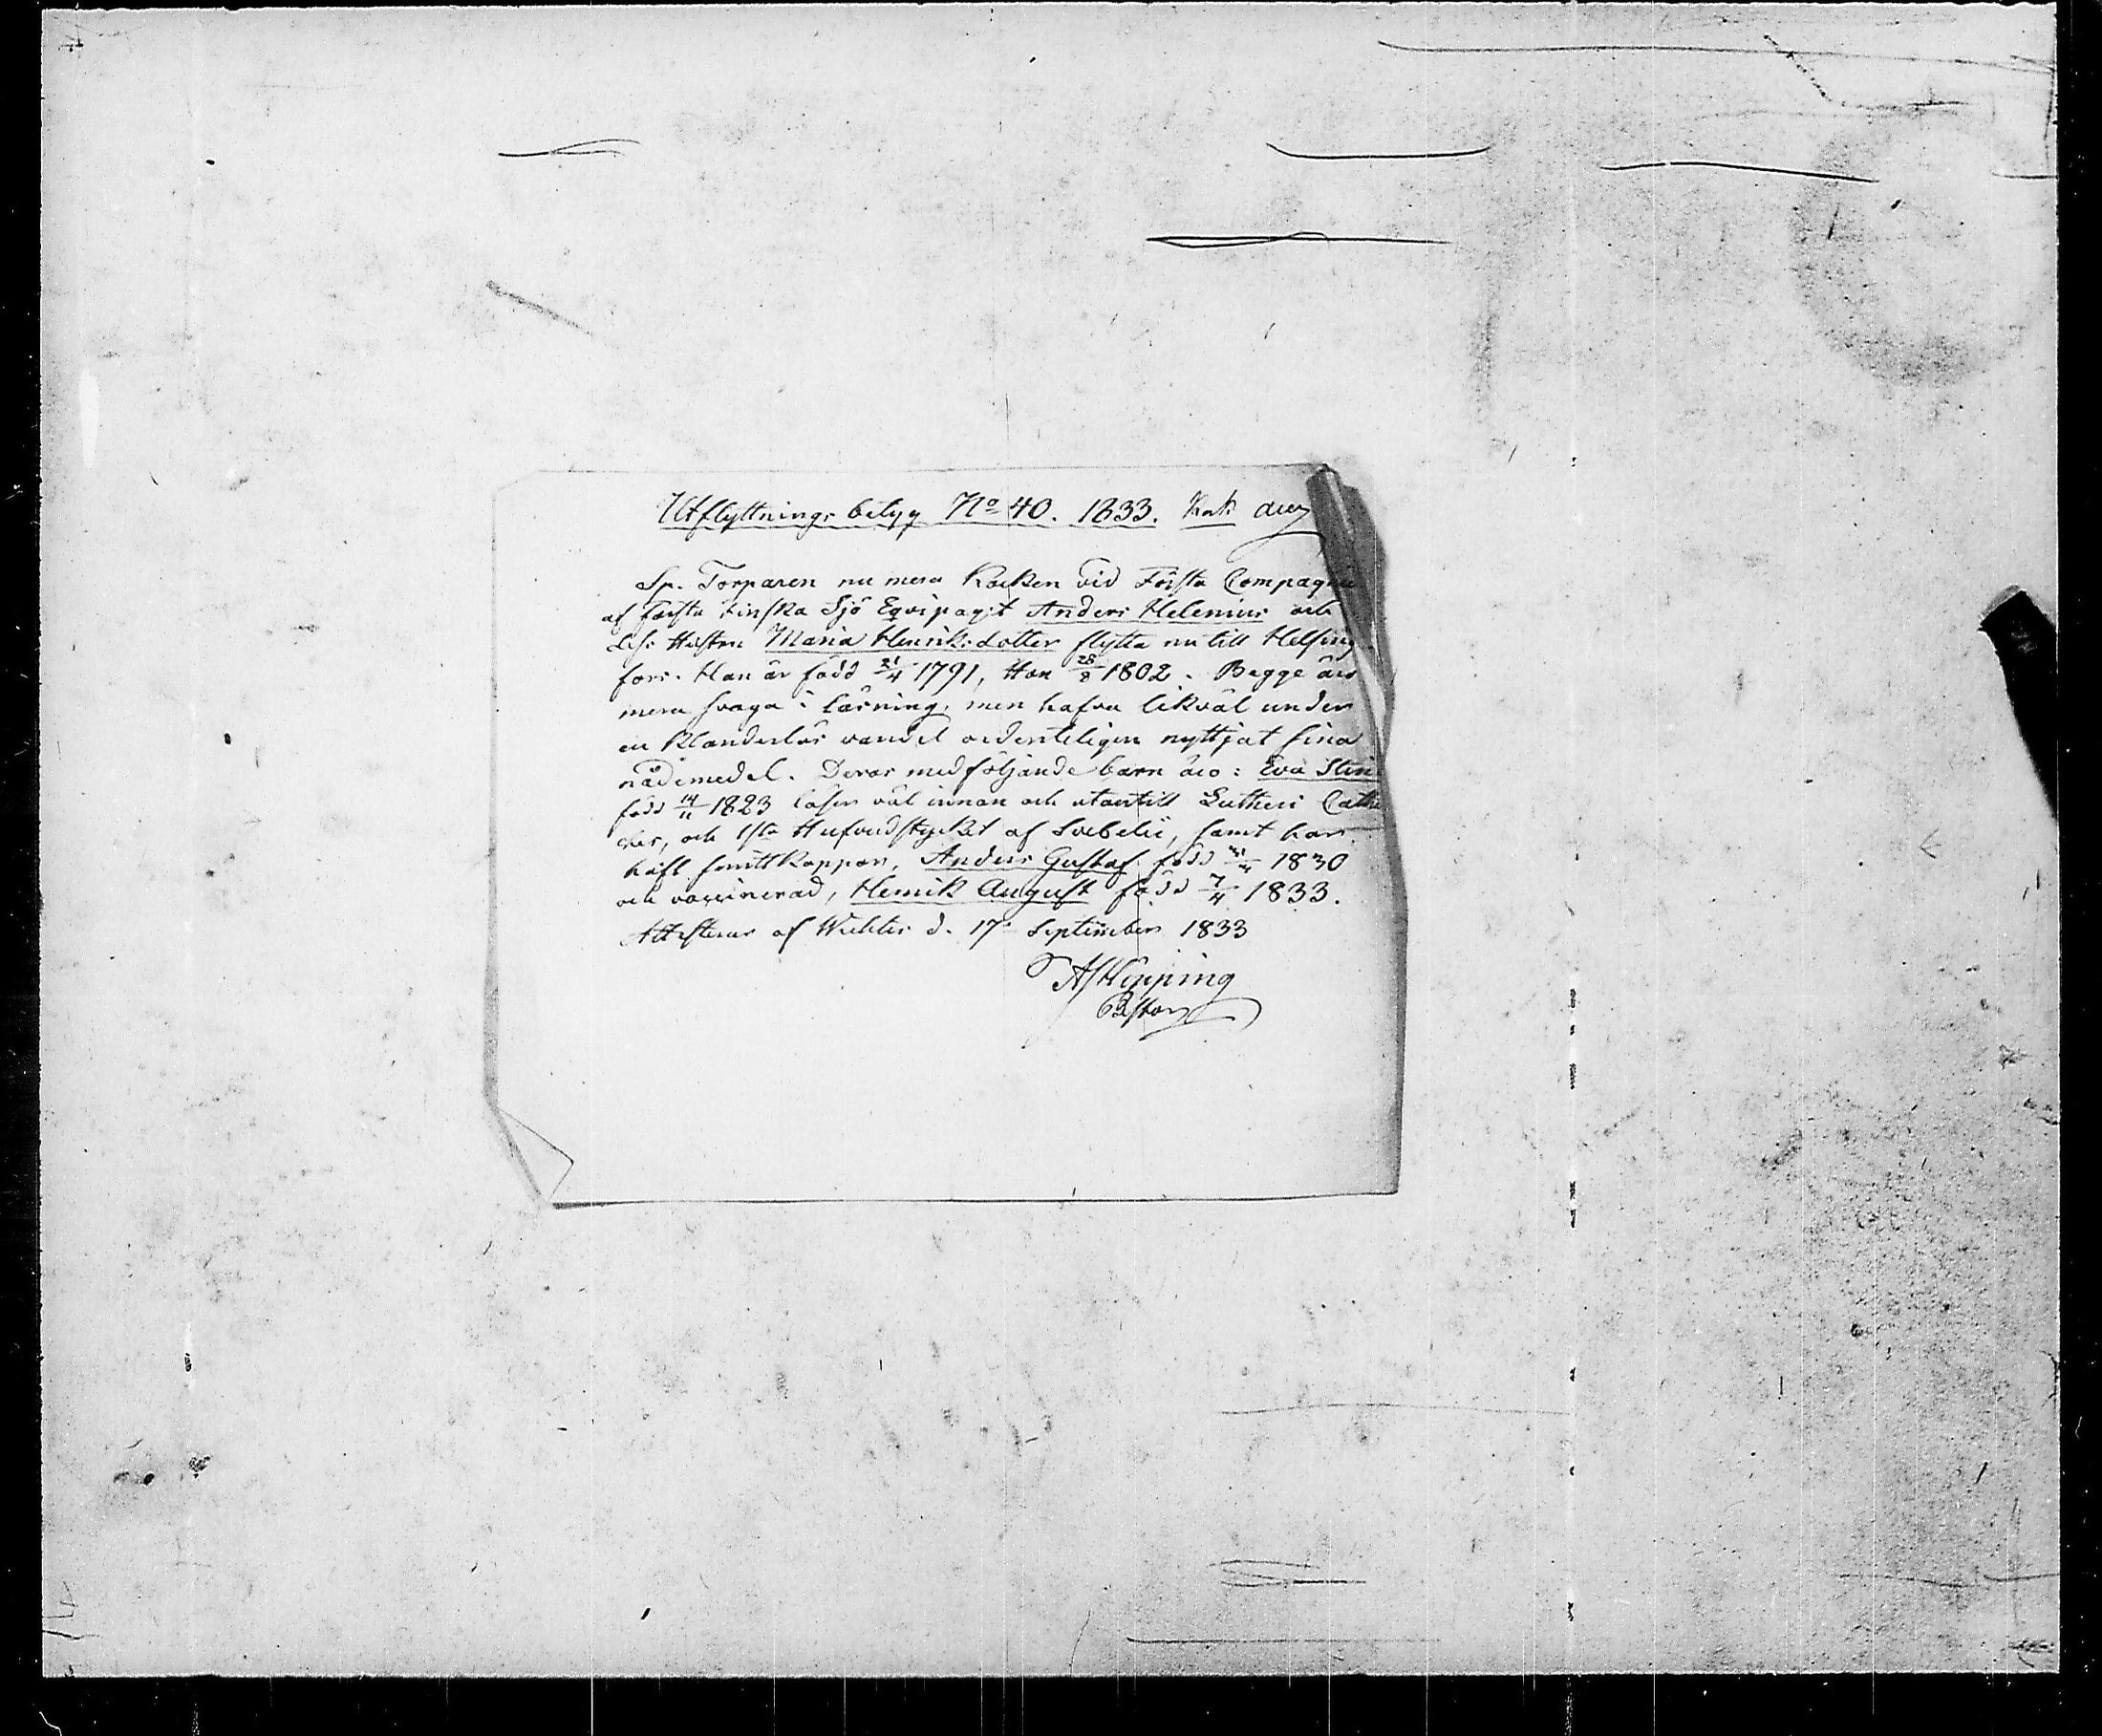 Utflyttnings betyg No 40. 1833.
Sp. Torparen nu mera Kocken vid Första Compagnie
af första Finska Sjö Eqvipaget Anders Helenius och
dess Hustru Maria Henriksdotter flytta nu till Helsing
fors. Han är född 21/4 1791, Hon 28/8 1802. Begge äro
mera svaga i läsning, men hafva likväl under
en klanderlös vandel ordenteligen nyttjat sina
nådemedel. Deras medföljande barn äro: Eva Stina
född 14/11 1823 läser väl innan och utantill Lutheri Cathe
ches, och 1sta Hufvudstycket af Svebelii, samt har
haft smittkoppor, Anders Gustaf född 1830
och vaccinerad, Henrik August född 7/4 1833.
Attesterar af Wichtis d. 17 September 1833
Hipping
Pastor